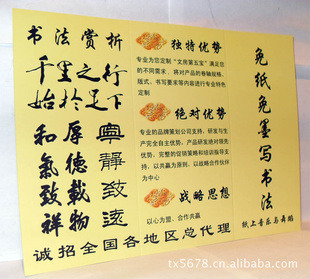 书法赏析
千里之行
始於足下
和氣致祥
厚德載物
寧靜致遠
独特优势
专业为您定制“文房第五宝”满足您
的不同需求、将对产品的卷轴规格、
版式、书写要求等内容进行专业特色
定制
绝对优势
专业的品牌策划公司支持，研发与生
产完全自主优势，产品研发绝对领先
优势，完整的促销策略和培训指导支
持，以共赢为原则，以战略合作伙伴
为中心
战略思想
以心为盟、合作共赢
免纸免墨写书法
纸上音乐与舞蹈
诚招全国各地区总代理
tx5678.cn.alibaba.com